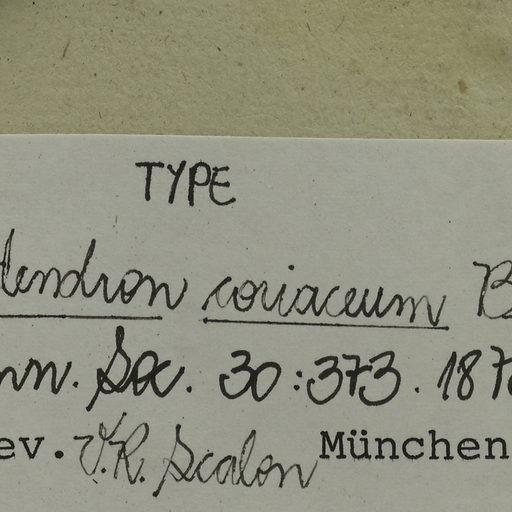 TYPE
dendron coriaceum B
nn. Soc. 30:373. 187
ev. V.R. Scalon München